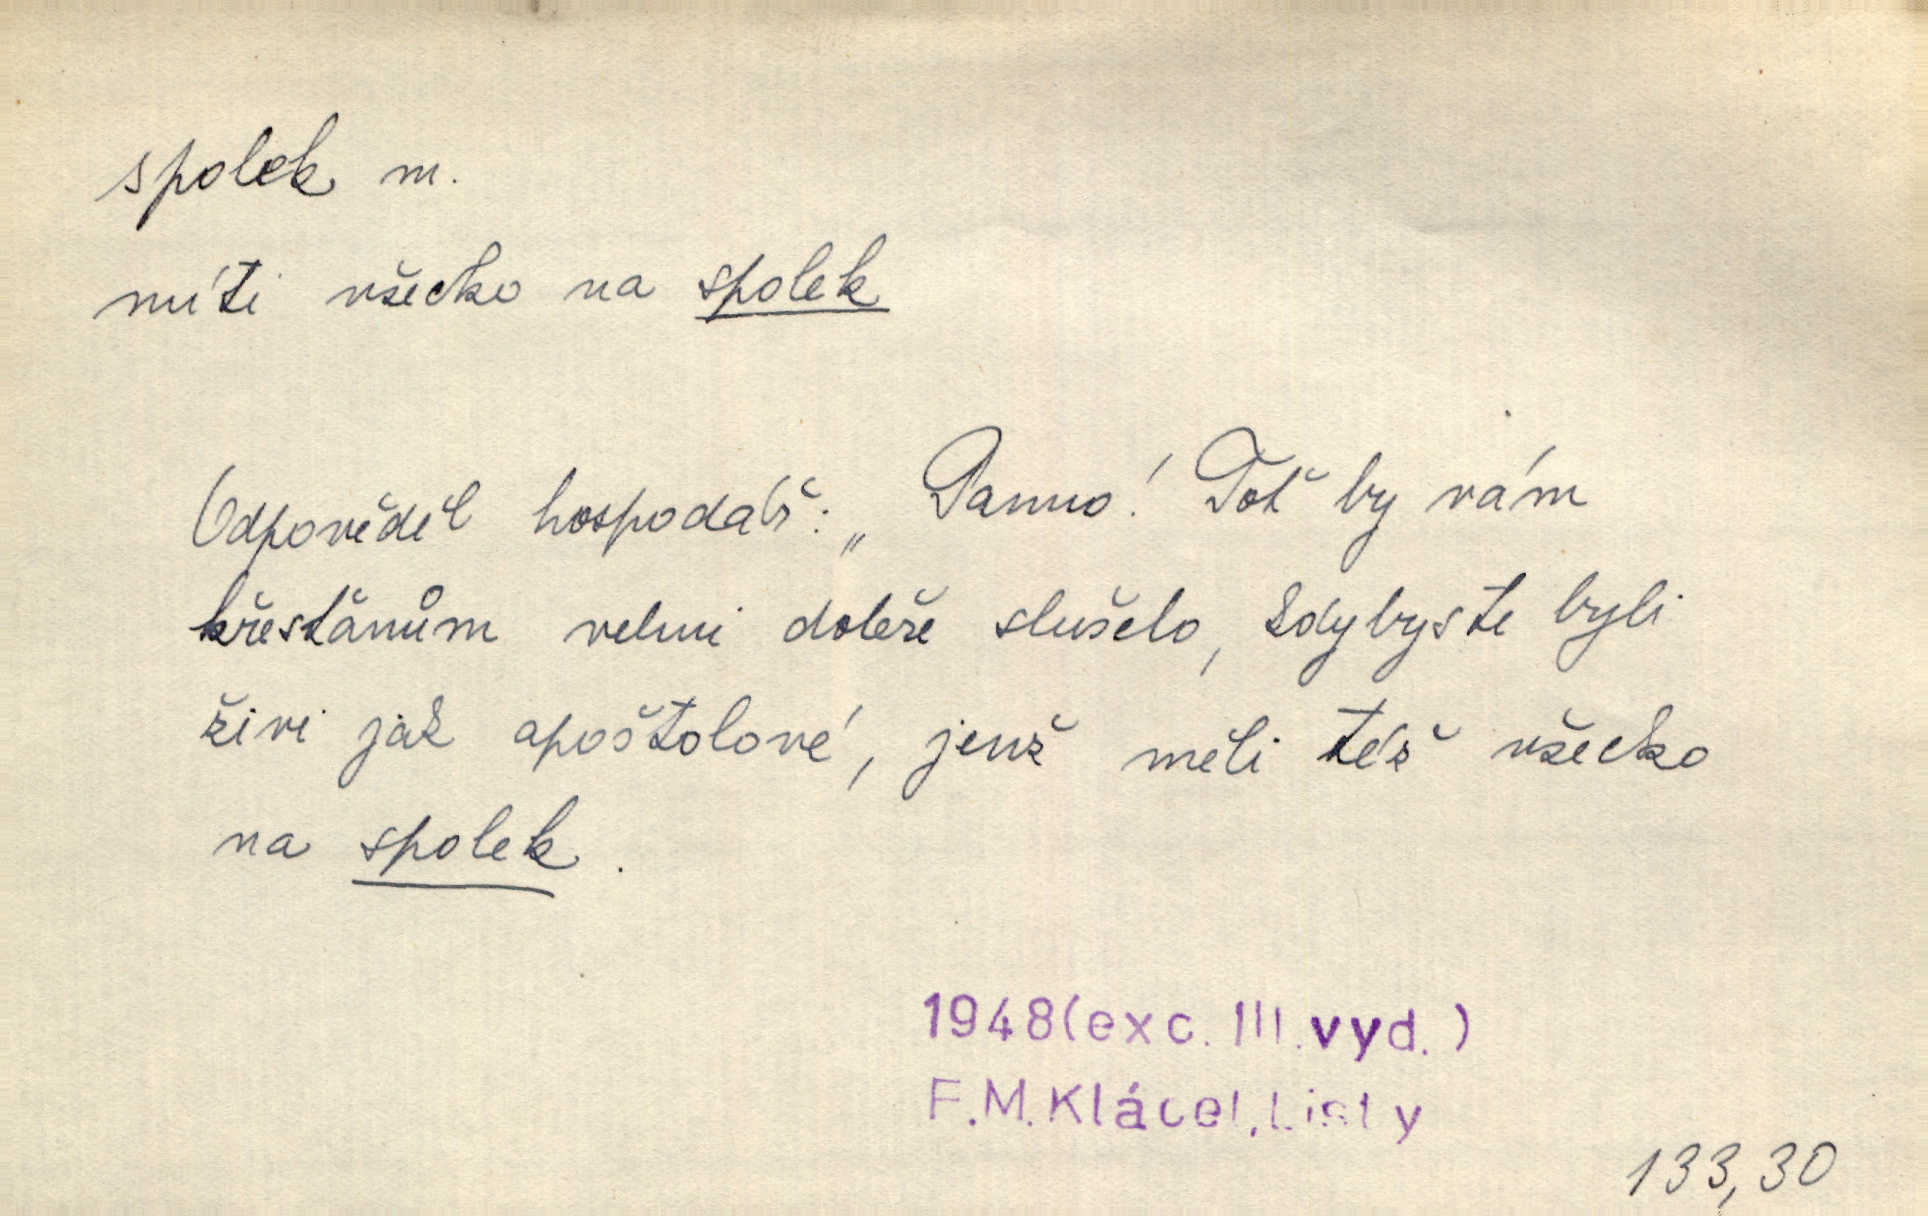 spolek m.
míti všecko na spolek
Odpověděl hospodář: „Panno! Toť by vám
křesťanům velmi dobře slušelo, kdybyste byli
živi jak apoštolové, jenž měli též všecko
na spolek.
1948(exc. III. vyd.)
F.M.Klácel, Listy
133,30